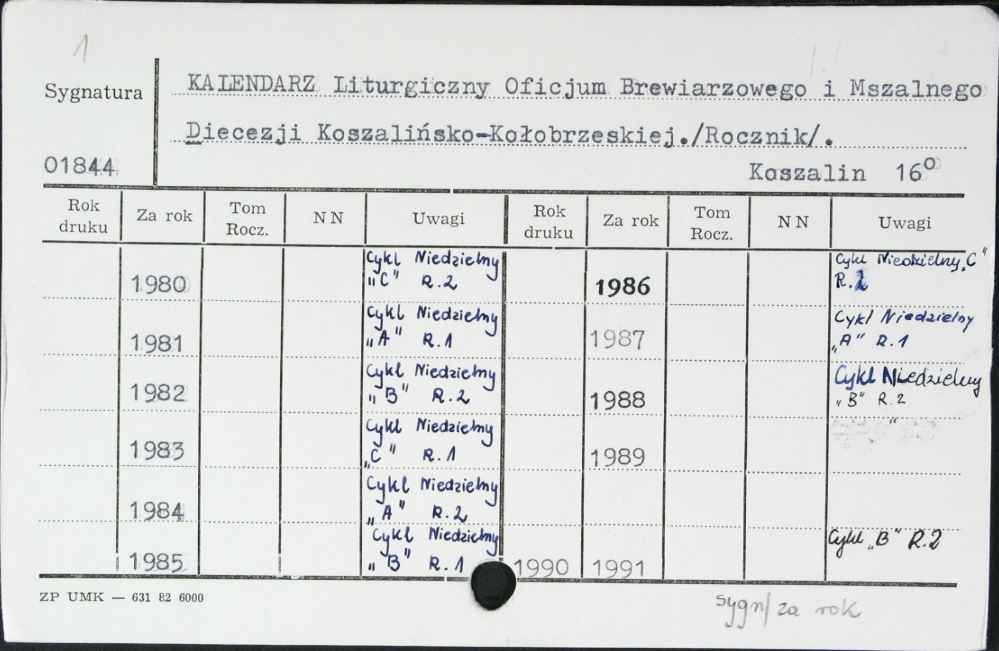 1
Sygnatura
KALENDARZ Liturgiczny Oficjum Brewiarzowego i Mszalnego
Diecezji Koszalińsko-Kołobrzeskiej./Rocznik/.
01844
Koszalin 16°
Rok druku Za rok Tom Rocz. NN Uwagi Rok druku Za rok Tom Rocz. NN Uwagi
1980 Cykl Niedzielny „C" R.2 1986 Cykl Niedzielny „C" R.2
1981 Cykl Niedzielny „A" R.1 1987 Cykl Niedzielny „A" R.1
1982 Cykl Niedzielny „B" R.2 1988 Cykl Niedzielny „B" R.2
1983 Cykl Niedzielny „C" R.1 1989
1984 Cykl Niedzielny „A" R.2
1985 Cykl Niedzielny „B" R.1 1990 1991 Cykl „B" R.2
ZP UMK — 631 82 6000
sygn/za rok